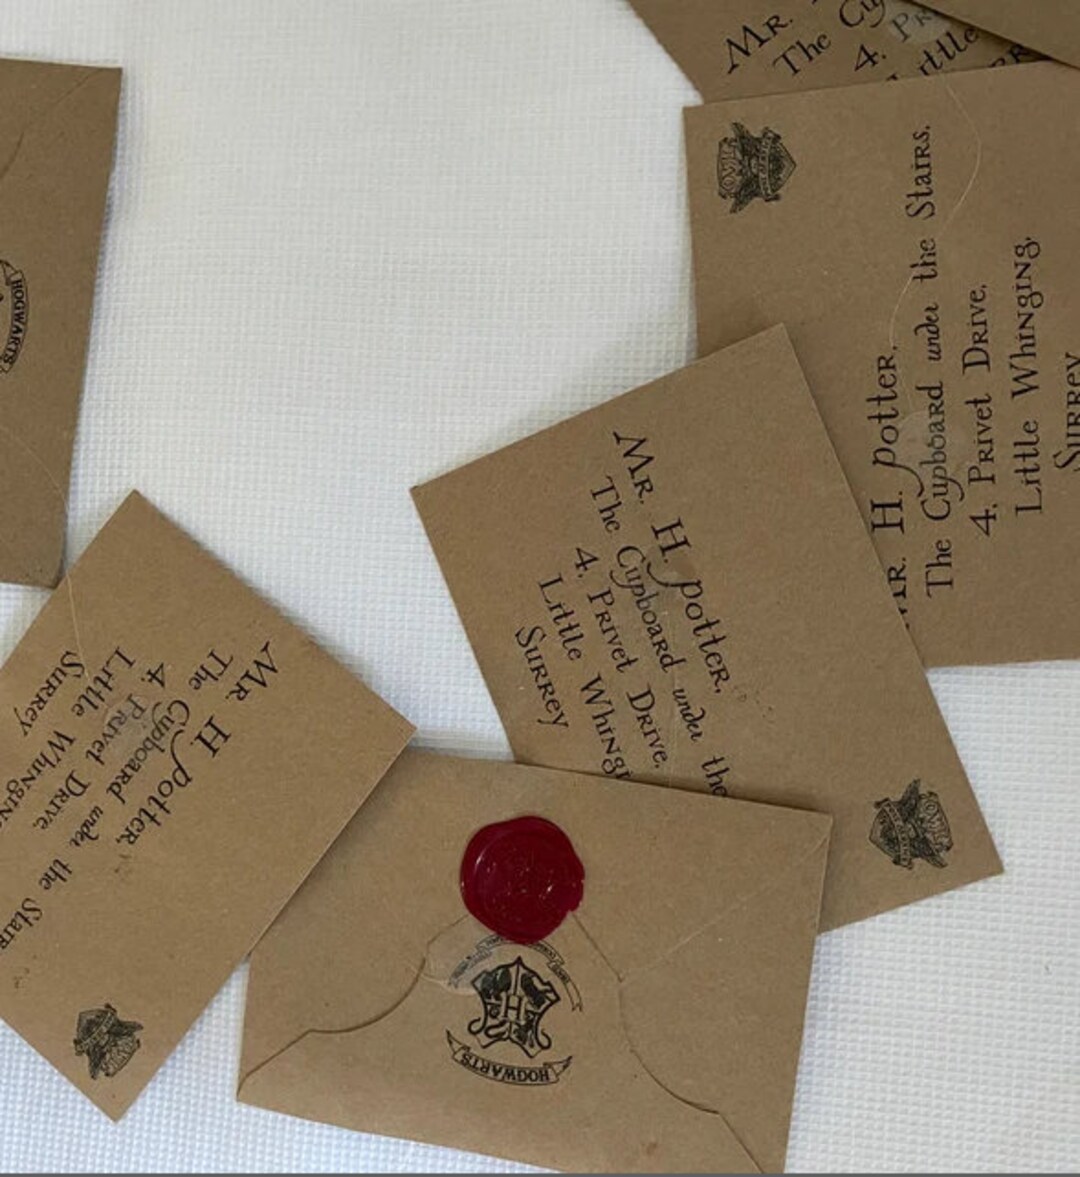 Mr.
The Cup
4. Pr
Little
Mr. H. Potter,
The Cupboard under the Stairs,
4, Privet Drive,
Little Whinging,
Surrey
Mr. H. Potter,
The Cupboard under the
4, Privet Drive,
Little Whingi
Surrey
Mr. H. Potter,
The Cupboard under the Stairs
4, Privet Drive,
Little Whinging
Surrey
HOGWARTS
H
HOGWARTS